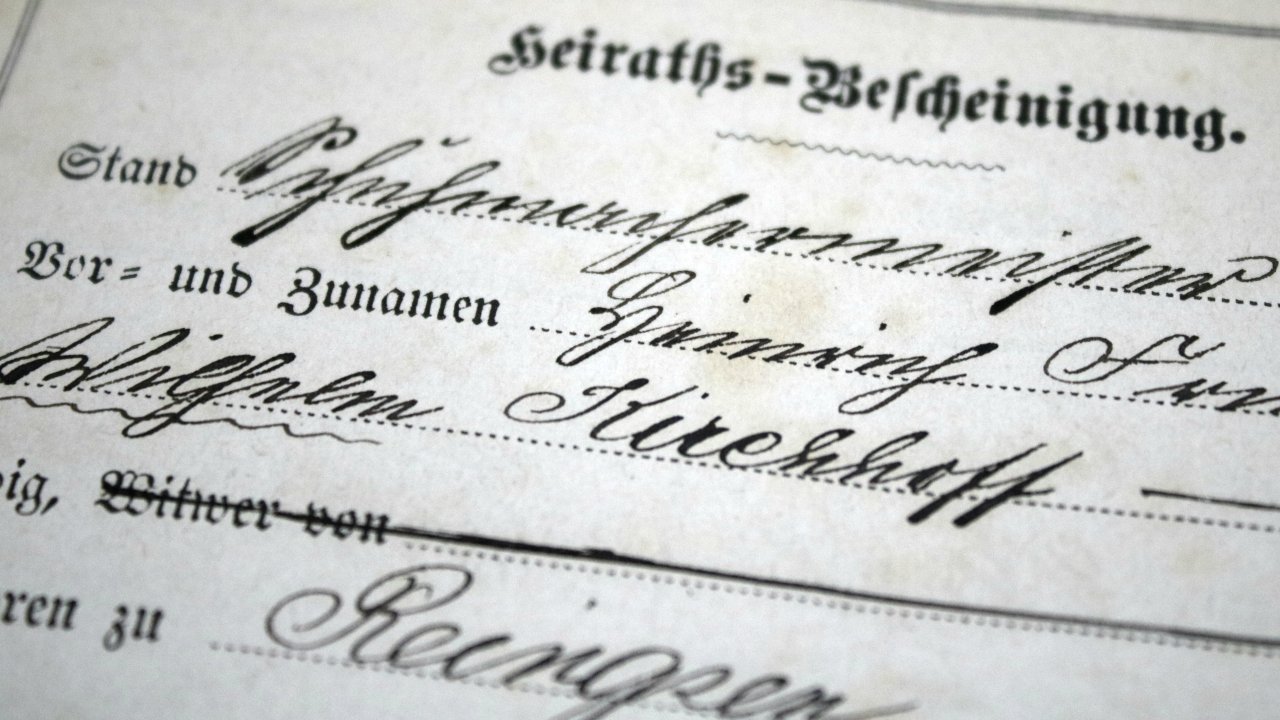 Heiraths-Bescheinigung.
Stand Schuhmachermeister
Vor- und Zunamen Heinrich
Wilhelm Kirchhoff
ig, Witwer von
ren zu Reingsen